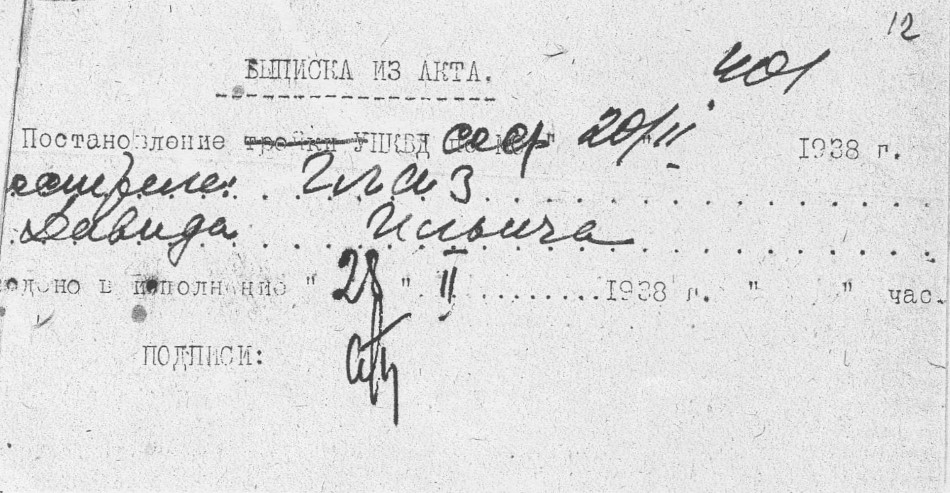 12
401
ВЫПИСКА ИЗ АКТА.
Постановление тройки УНКВД СССР 20/II 1938 г.
Глаз
Давида Ильича
едено в исполнение " 28 " II 1938 г. " " час.
ПОДПИСИ: